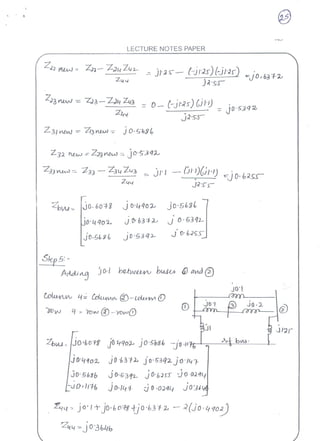 25
LECTURE NOTES PAPER
Z22 new = Z22 - Z24 Z42 / Z44 = j1.25 - (j1.25)(j1.25) / j2.55 = j0.6372
Z23 new = Z23 - Z24 Z43 / Z44 = 0 - (-j1.25)(j1.1) / j2.55 = j0.5392
Z31 new = Z13 new = j0.5686
Z32 new = Z23 new = j0.5392
Z33 new = Z33 - Z34 Z43 / Z44 = j1.1 - (j1.1)(j1.1) / j2.55 = j0.6255
Zbus = [j0.6078 j0.4902 j0.5686
j0.4902 j0.6372 j0.5392
j0.5686 j0.5392 j0.6255]
Step 5:-
Adding j0.1 between buses ① and ②
Column 4 = Column ② - column ①
row 4 = row ② - row ①
j0.1
① j0.1 j0.2 ②
j1 j1.25
bus
Zbus = [j0.6078 j0.4902 j0.5686 -j0.1176
j0.4902 j0.6372 j0.5392 j0.147
j0.5686 j0.5392 j0.6255 -j0.0294
-j0.1176 j0.147 -j0.0294 j0.3646]
Z44 = j0.1 + j0.6078 + j0.6372 - 2(j0.4902)
Z44 = j0.3646